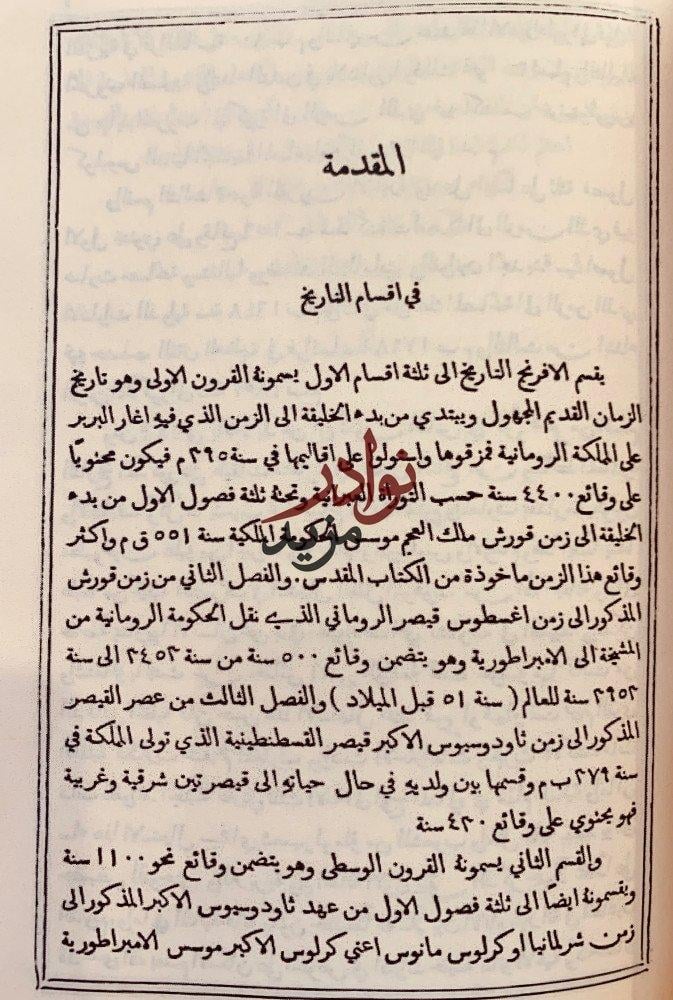 المقدمة
في اقسام التاريخ
يقسم الافرنج التاريخ الى ثلثة اقسام الاول يسمونهُ القرون الاولى وهو تاريخ
الزمان القديم المجهول ويبتدي من بدء الخليقة الى الزمن الذي فيهِ اغار البربر
على المملكة الرومانية فمزقوها واستولوا على اقاليمها في سنة ٣٩٥ م فيكون محتويًا
على وقائع ٤٤٠٠ سنة حسب التوراة العبرانية وتحتهُ ثلثة فصول الاول من بدء
الخليقة الى زمن قورش ملك العجم موسس الحكومة الملكية سنة ٥٥١ ق م واكثر
وقائع هذا الزمن ماخوذة من الكتاب المقدس. والفصل الثاني من زمن قورش
المذكور الى زمن اغسطوس قيصر الروماني الذي نقل الحكومة الرومانية من
المشيخة الى الامبراطورية وهو يتضمن وقائع ٥٠٠ سنة من سنة ٣٤٥٣ الى سنة
٣٩٥٣ سنة للعالم ( سنة ٥١ قبل الميلاد ) والفصل الثالث من عصر القيصر
المذكور الى زمن ثاودوسيوس الاكبر قيصر القسطنطينية الذي تولى المملكة في
سنة ٣٧٩ ب م وقسمها بين ولديهِ في حال حياتهِ الى قيصرتين شرقية وغربية
فهو يحتوي على وقائع ٤٣٠ سنة
والقسم الثاني يسمونهُ القرون الوسطى وهو يتضمن وقائع نحو ١١٠٠ سنة
ويقسمونهُ ايضًا الى ثلثة فصول الاول من عهد ثاودوسيوس الاكبر المذكور الى
زمن شرلمانيا او كرلوس مانوس اعني كرلوس الاكبر موسس الامبراطورية
نوادر
مزيد